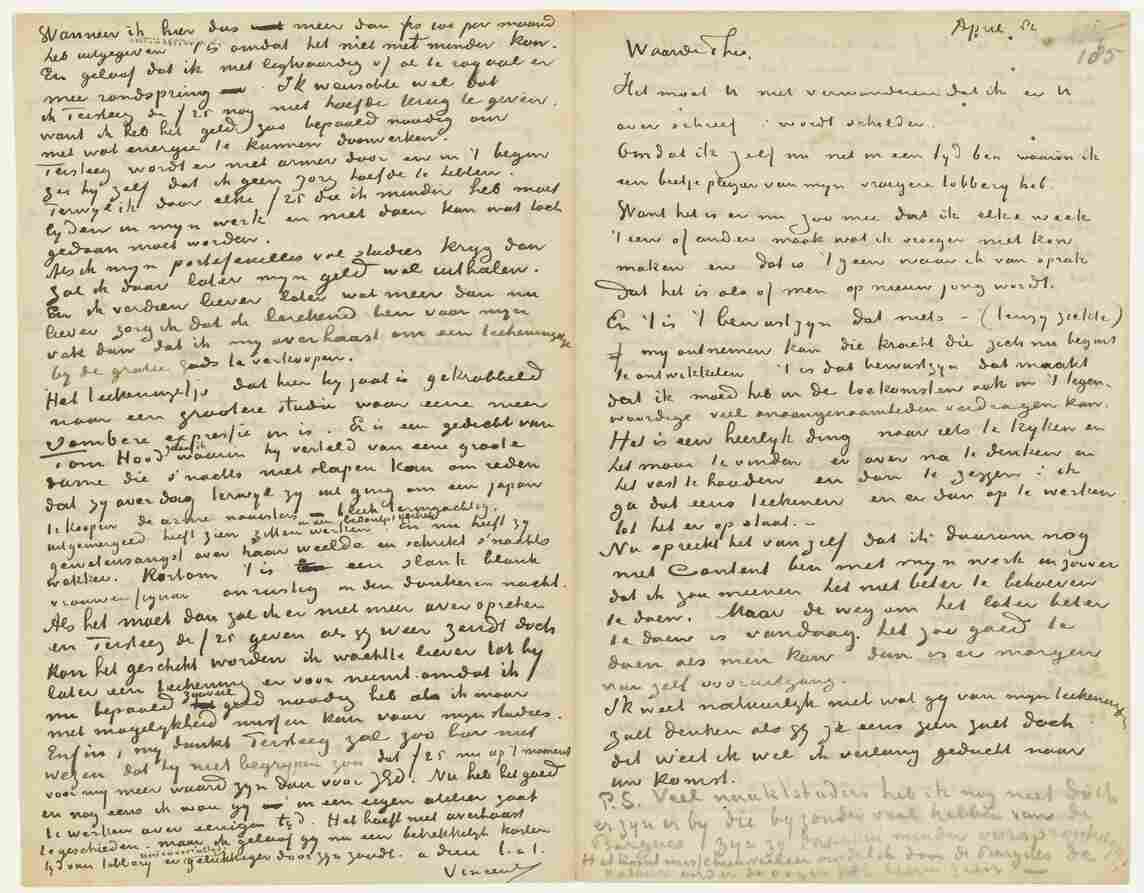 Wanneer ik hier dus meer dan fr. 100 per maand
heb uitgegeven is omdat het niet met minder kon.
En geloof dat ik niet ligtvaardig of al te royaal er
mee rondspring. Ik wenschte wel dat
ik Tersteeg de f 25 nog niet hoefde terug te geven,
want ik heb het geld zoo bepaald noodig om
met wat energie te kunnen doorwerken.
Tersteeg wordt er niet armer door en in 't begin
zei hij zelf dat ik geen zorg hoefde te hebben.
Terwijl ik door elke f 25 die ik minder heb moet
lijden in mijn werk en niet doen kan wat toch
gedaan moet worden.
Als ik mijn portefeuilles vol studies krijg dan
zal ik daar later mijn geld wel uithalen.
En ik verdien liever later wat meer dan nu
liever zorg ik dat ik teekend ben voor mijn
vak dan dat ik mij overhaast om een teekeningetje
bij de gratie Gods te verkoopen.
Het teekeningetje dat hier bij gaat is gekrabbeld
naar een grootere studie waar eene meer
sombere expressie in is. Er is een gedicht van
Tom Hood waarin hij verteld van eene groote
dame die s'nachts niet slapen kan om reden
dat zij over dag terwijl zij uit ging om een japon
te koopen de arme naaisters – bleek teringachtig,
uitgemergeld heeft zien zitten werken in een benaauwd vertrek en nu heeft zij
gewetensangst over haar weelde en schrikt s'nachts
wakker. Kortom 't is een slank blank
vrouwenfiguur onrustig in den donkeren nacht.
Als het moet dan zal ik er niet meer over spreken
en Tersteeg de f 25 geven als gij weer zendt doch
kon het geschikt worden ik wachtte liever tot hij
later een teekening er voor neemt omdat ik
nu bepaald zooveel geld noodig heb als ik maar
met mogelijkheid missen kan voor mijn studies.
Enfin, mij dunkt Tersteeg zal zoo hard niet
wezen dat hij niet begrijpen zou dat f 25 nu op 't moment
voor mij meer waard zijn dan voor HGT. Nu heb het goed
en nog eens ik wou gij in een eigen atelier zaat
te werken over eenigen tijd. Het hoeft niet overhaast
te geschieden maar ik geloof gij na een betrekkelijk korten
tijd van tobberij er gelukkiger door zijn zoudt. adieu t. à t.
Vincent
April. 82
185
Waarde Theo.
Het moet U niet verwonderen dat ik er U
over schreef: wordt schilder.
Omdat ik zelf nu net in een tijd ben waarin ik
een beetje plezier van mijn vroegere tobberij heb.
Want het is er nu zoo mee dat ik elke week
't een of ander maak wat ik vroeger niet kon
maken en dat is 't geen waar ik van sprak
Dat het is als of men op nieuw jong wordt.
En 't is 't bewustzijn dat niets – (tenzij ziekte)
mij ontnemen kan die kracht die zich nu begint
te ontwikkelen 't is dat bewustzijn dat maakt
dat ik moed heb in de toekomst en ook in 't tegen-
woordige veel onaangenaamheden verdragen kan.
Het is een heerlijk ding naar iets te kijken en
het mooi te vinden er over na te denken en
het vast te houden en dan te zeggen: ik
ga dat eens teekenen en er dan op te werken
tot het er op staat. –
Nu spreekt het van zelf dat ik daarom nog
niet content ben met mijn werk in zoover
dat ik zou meenen het niet beter te behoeven
te doen. Maar de weg om het later beter
te doen is vandaag het zoo goed te
doen als men kan dan is er morgen
van zelf vooruitgang.
Ik weet natuurlijk niet wat gij van mijn teekeningen
zult denken als gij ze eens zien zult doch
dit weet ik wel ik verlang geducht naar
uw komst.
P.S. Veel naaktstudies heb ik nog niet doch
er zijn er bij die bijzonder veel hebben van de
Bargues zijn zij daarom minder oorspronkelijk
Het komt misschien veeleer omdat ik door de Bargues de
natuur